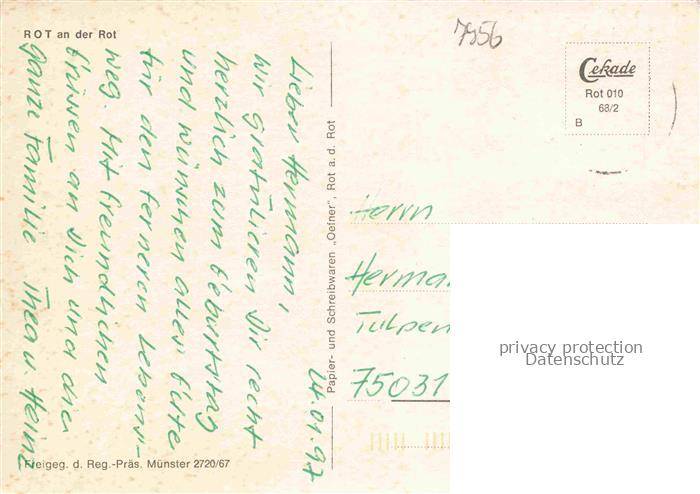 ROT an der Rot
7956
Cekade
Rot 010
68/2
B
24.01.97
Lieber Hermann,
wir gratulieren Dir recht
herzlich zum Geburtstag
und wünschen alles Gute
für den ferneren Lebens-
weg. Mit freundlichen
Grüssen an Dich und die
ganze Familie Thea u. Heinz
Papier- und Schreibwaren „Oefner", Rot a. d. Rot
Herrn
Herma
Tulpen
75031
privacy protection
Datenschutz
Freigeg. d. Reg.-Präs. Münster 2720/67